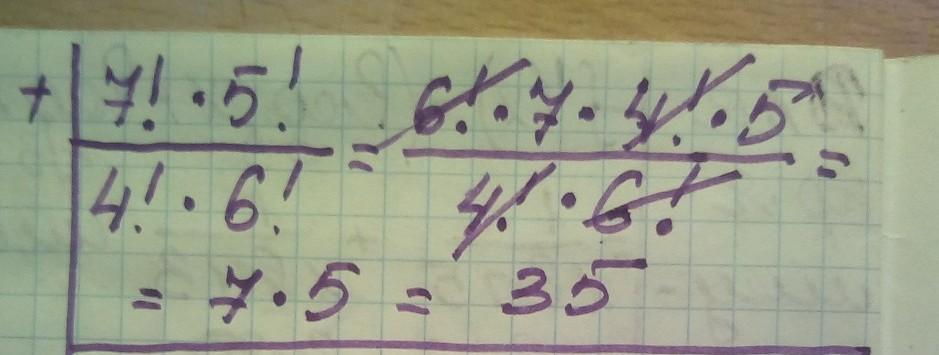 + 7! · 5! / 4! · 6! = 6! · 7 · 4! · 5 / 4! · 6! =
= 7 · 5 = 35